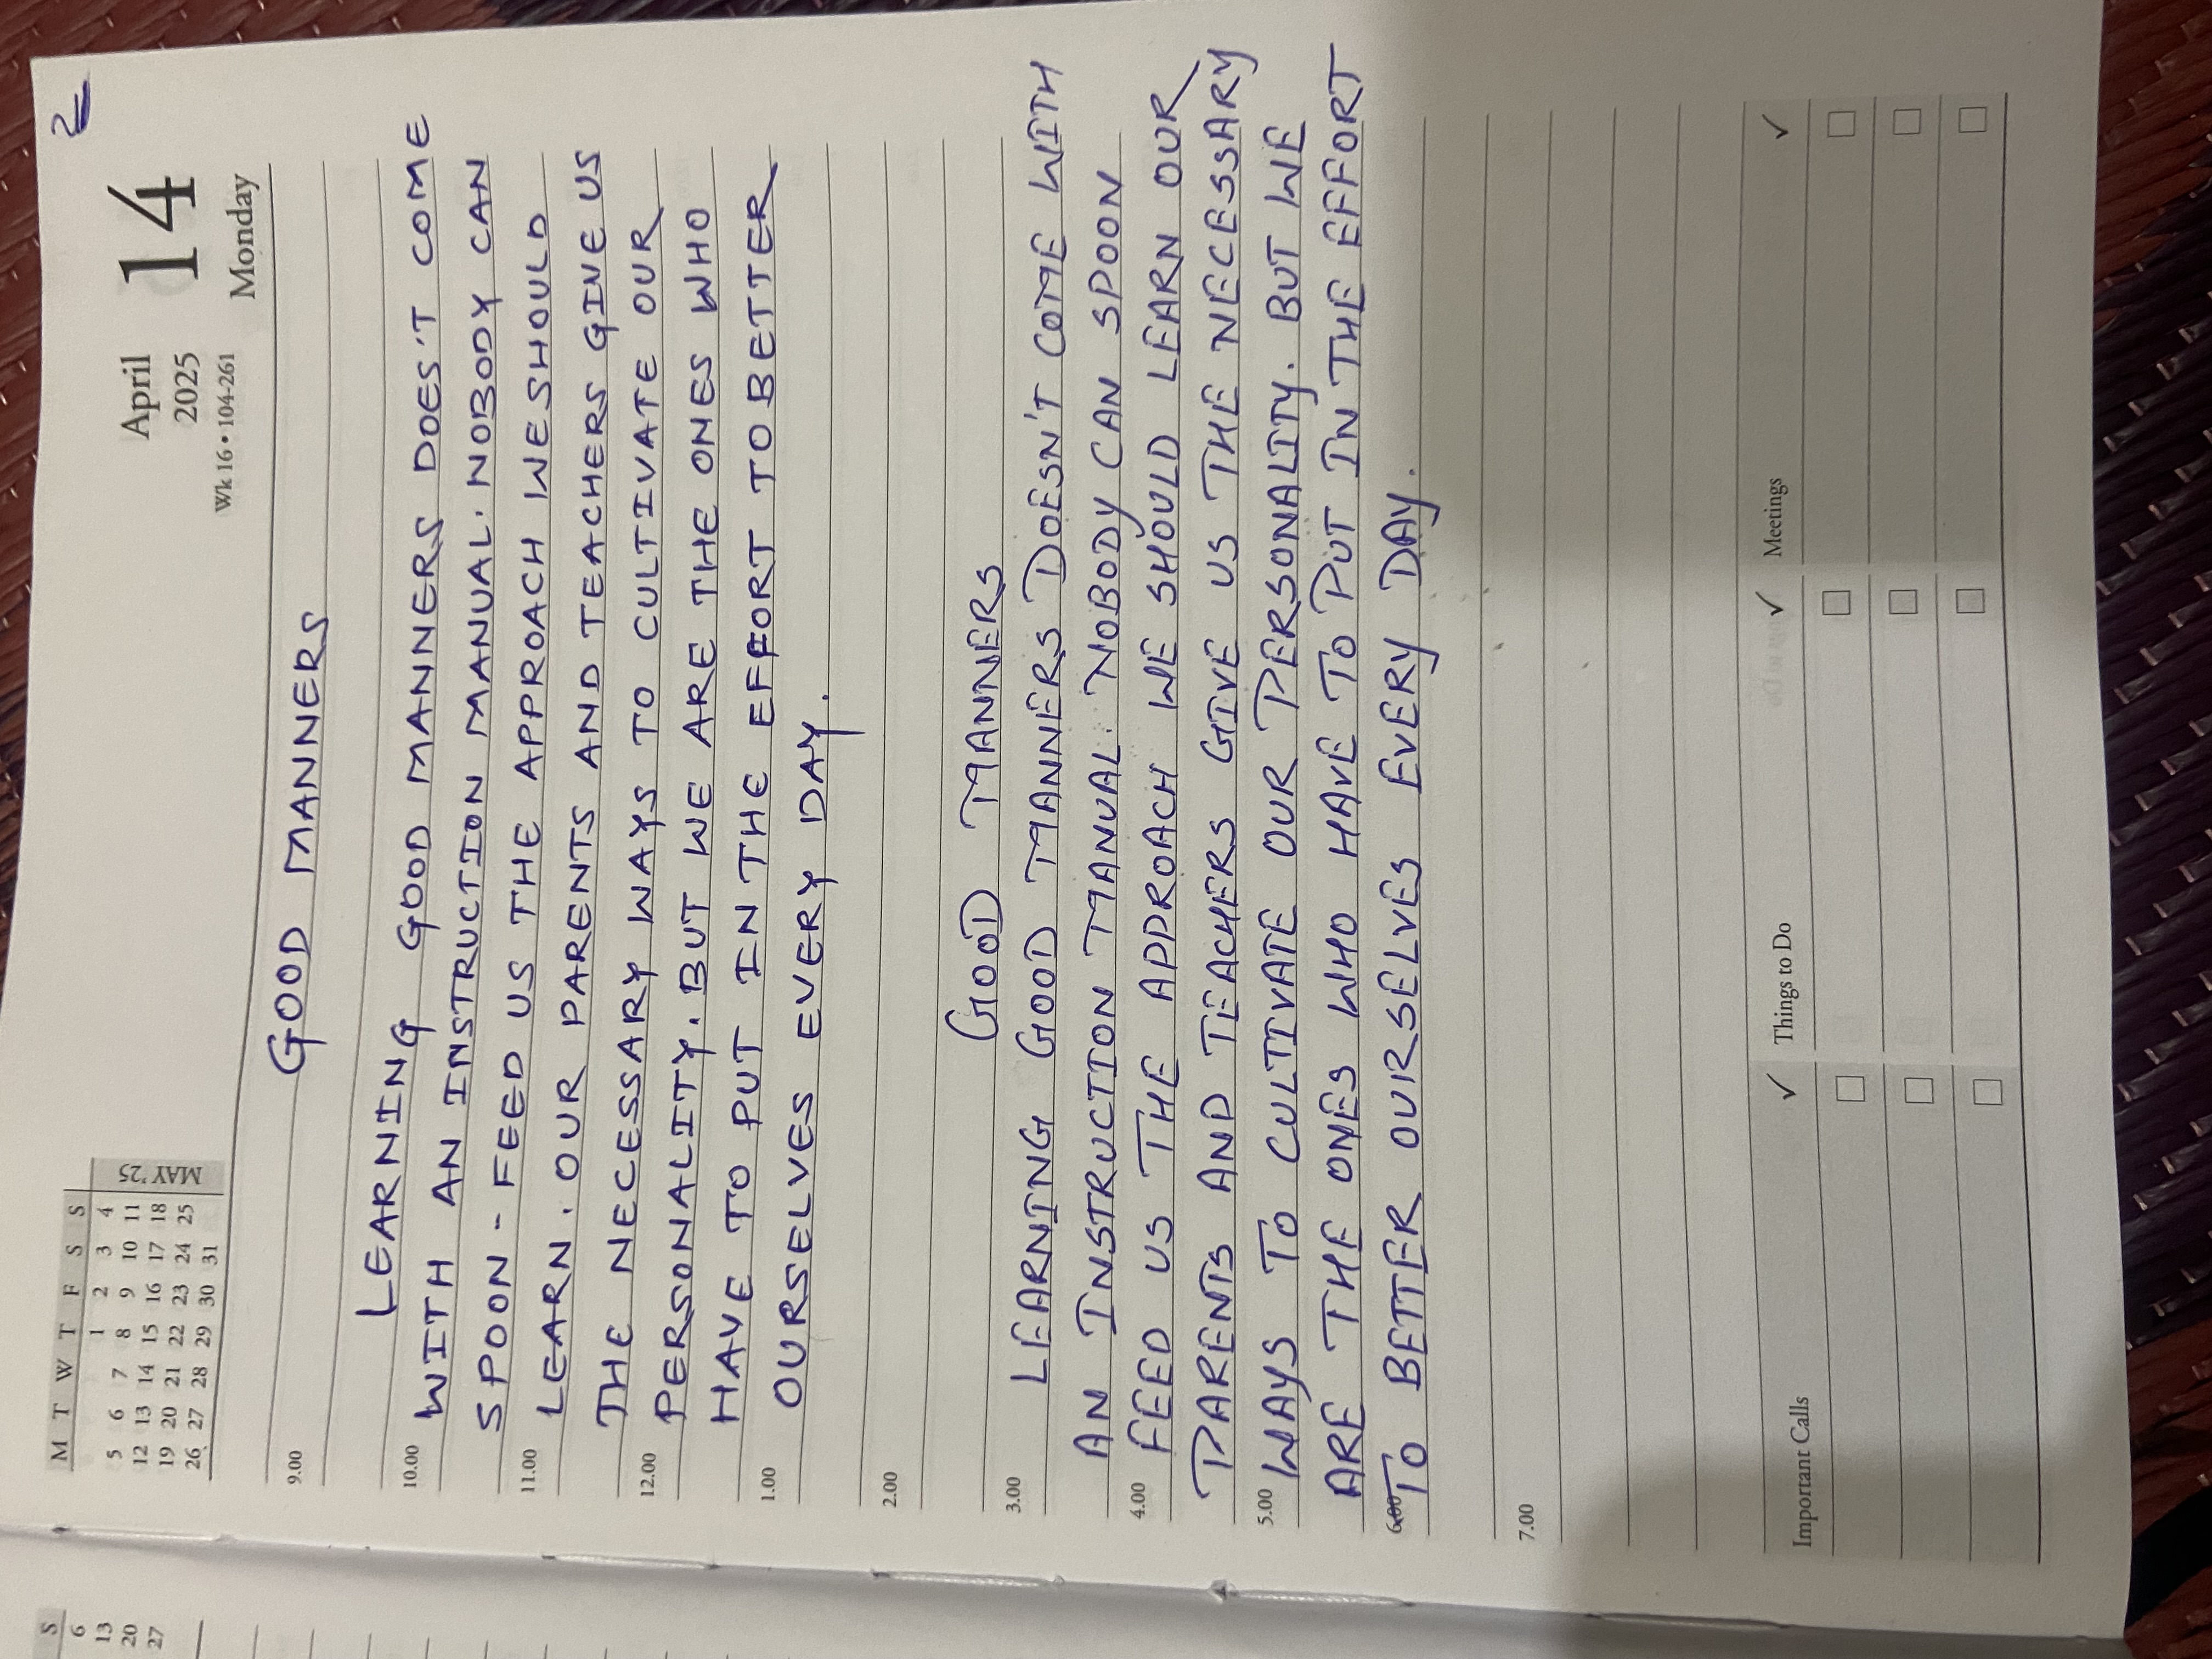 2
April 14
2025 Monday
Wk 16 • 104-261
M T W T F S S
1 2 3 4
5 6 7 8 9 10 11
12 13 14 15 16 17 18
19 20 21 22 23 24 25
26 27 28 29 30 31
MAY '25
S
6
13
20
27
9.00 GOOD MANNERS
LEARNING GOOD MANNERS DOES'T COME
10.00 WITH AN INSTRUCTION MANUAL. NOBODY CAN
SPOON - FEED US THE APPROACH WE SHOULD
11.00 LEARN. OUR PARENTS AND TEACHERS GIVE US
THE NECESSARY WAYS TO CULTIVATE OUR
12.00 PERSONALITY. BUT WE ARE THE ONES WHO
HAVE TO PUT IN THE EFFORT TO BETTER
1.00 OURSELVES EVERY DAY.
2.00
GOOD MANNERS
3.00 LEARNING GOOD MANNERS DOESN'T COME WITH
AN INSTRUCTION MANUAL. NOBODY CAN SPOON
4.00 FEED US THE APPROACH WE SHOULD LEARN OUR
PARENTS AND TEACHERS GIVE US THE NECESSARY
5.00 WAYS TO CULTIVATE OUR PERSONALITY. BUT WE
ARE THE ONES WHO HAVE TO PUT IN THE EFFORT
6.00 TO BETTER OURSELVES EVERY DAY.
7.00
Important Calls ✓ Things to Do ✓ Meetings ✓